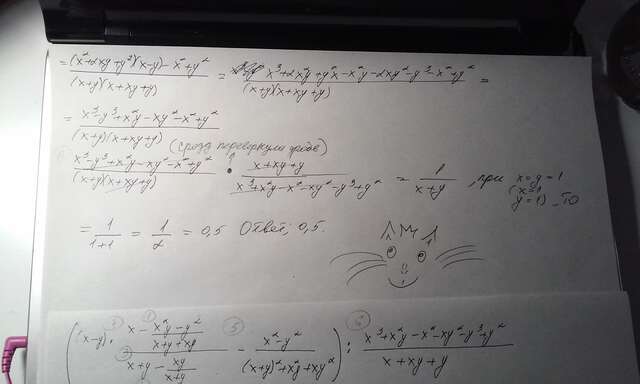 = ((x²+2xy+y²)(x-y)-x²+y²)/((x+y)(x+xy+y)) = (x³+2x²y+y²x-x²y-2xy²-y³-x²+y²)/((x+y)(x+xy+y)) =
= (x³-y³+x²y-xy²-x²+y²)/((x+y)(x+xy+y)) (сразу перевернула дробь)
(x³-y³+x²y-xy²-x²+y²)/((x+y)(x+xy+y)) · (x+xy+y)/(x³+x²y-x²-xy²-y³+y²) = 1/(x+y), при x=y=1
(x=1
y=1), то
= 1/(1+1) = 1/2 = 0,5 Ответ: 0,5.
((x-y) · (x - (x²y-y²)/(x+y+xy))/(x+y - xy/(x+y)) - (x²-y²)/((x+y)²+x²y+xy²)) : (x³+x²y-x²-xy²-y³+y²)/(x+xy+y)